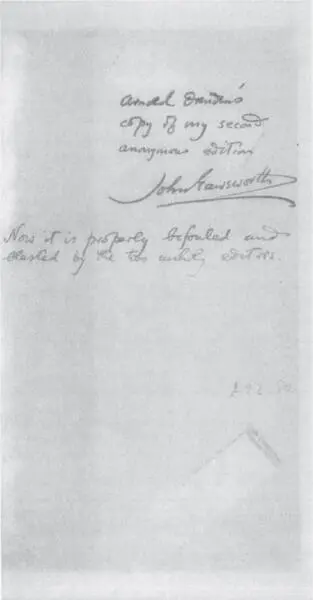 copy of my second
anonymous edition
John Gawsworth
Now it is properly befouled and
by the two unholy editors.